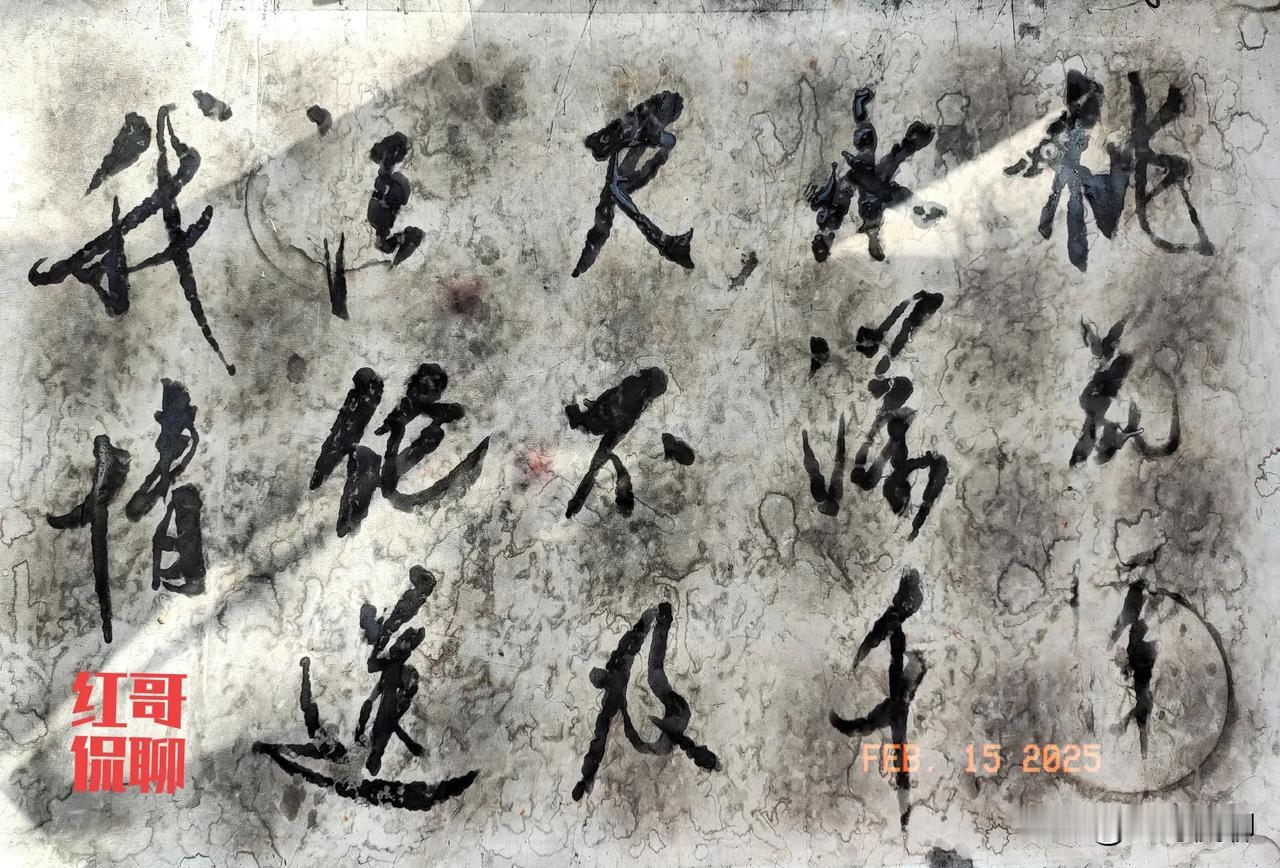 桃花潭
水深千
尺不及
汪伦送
我情
红哥
侃聊
FEB. 15 2025